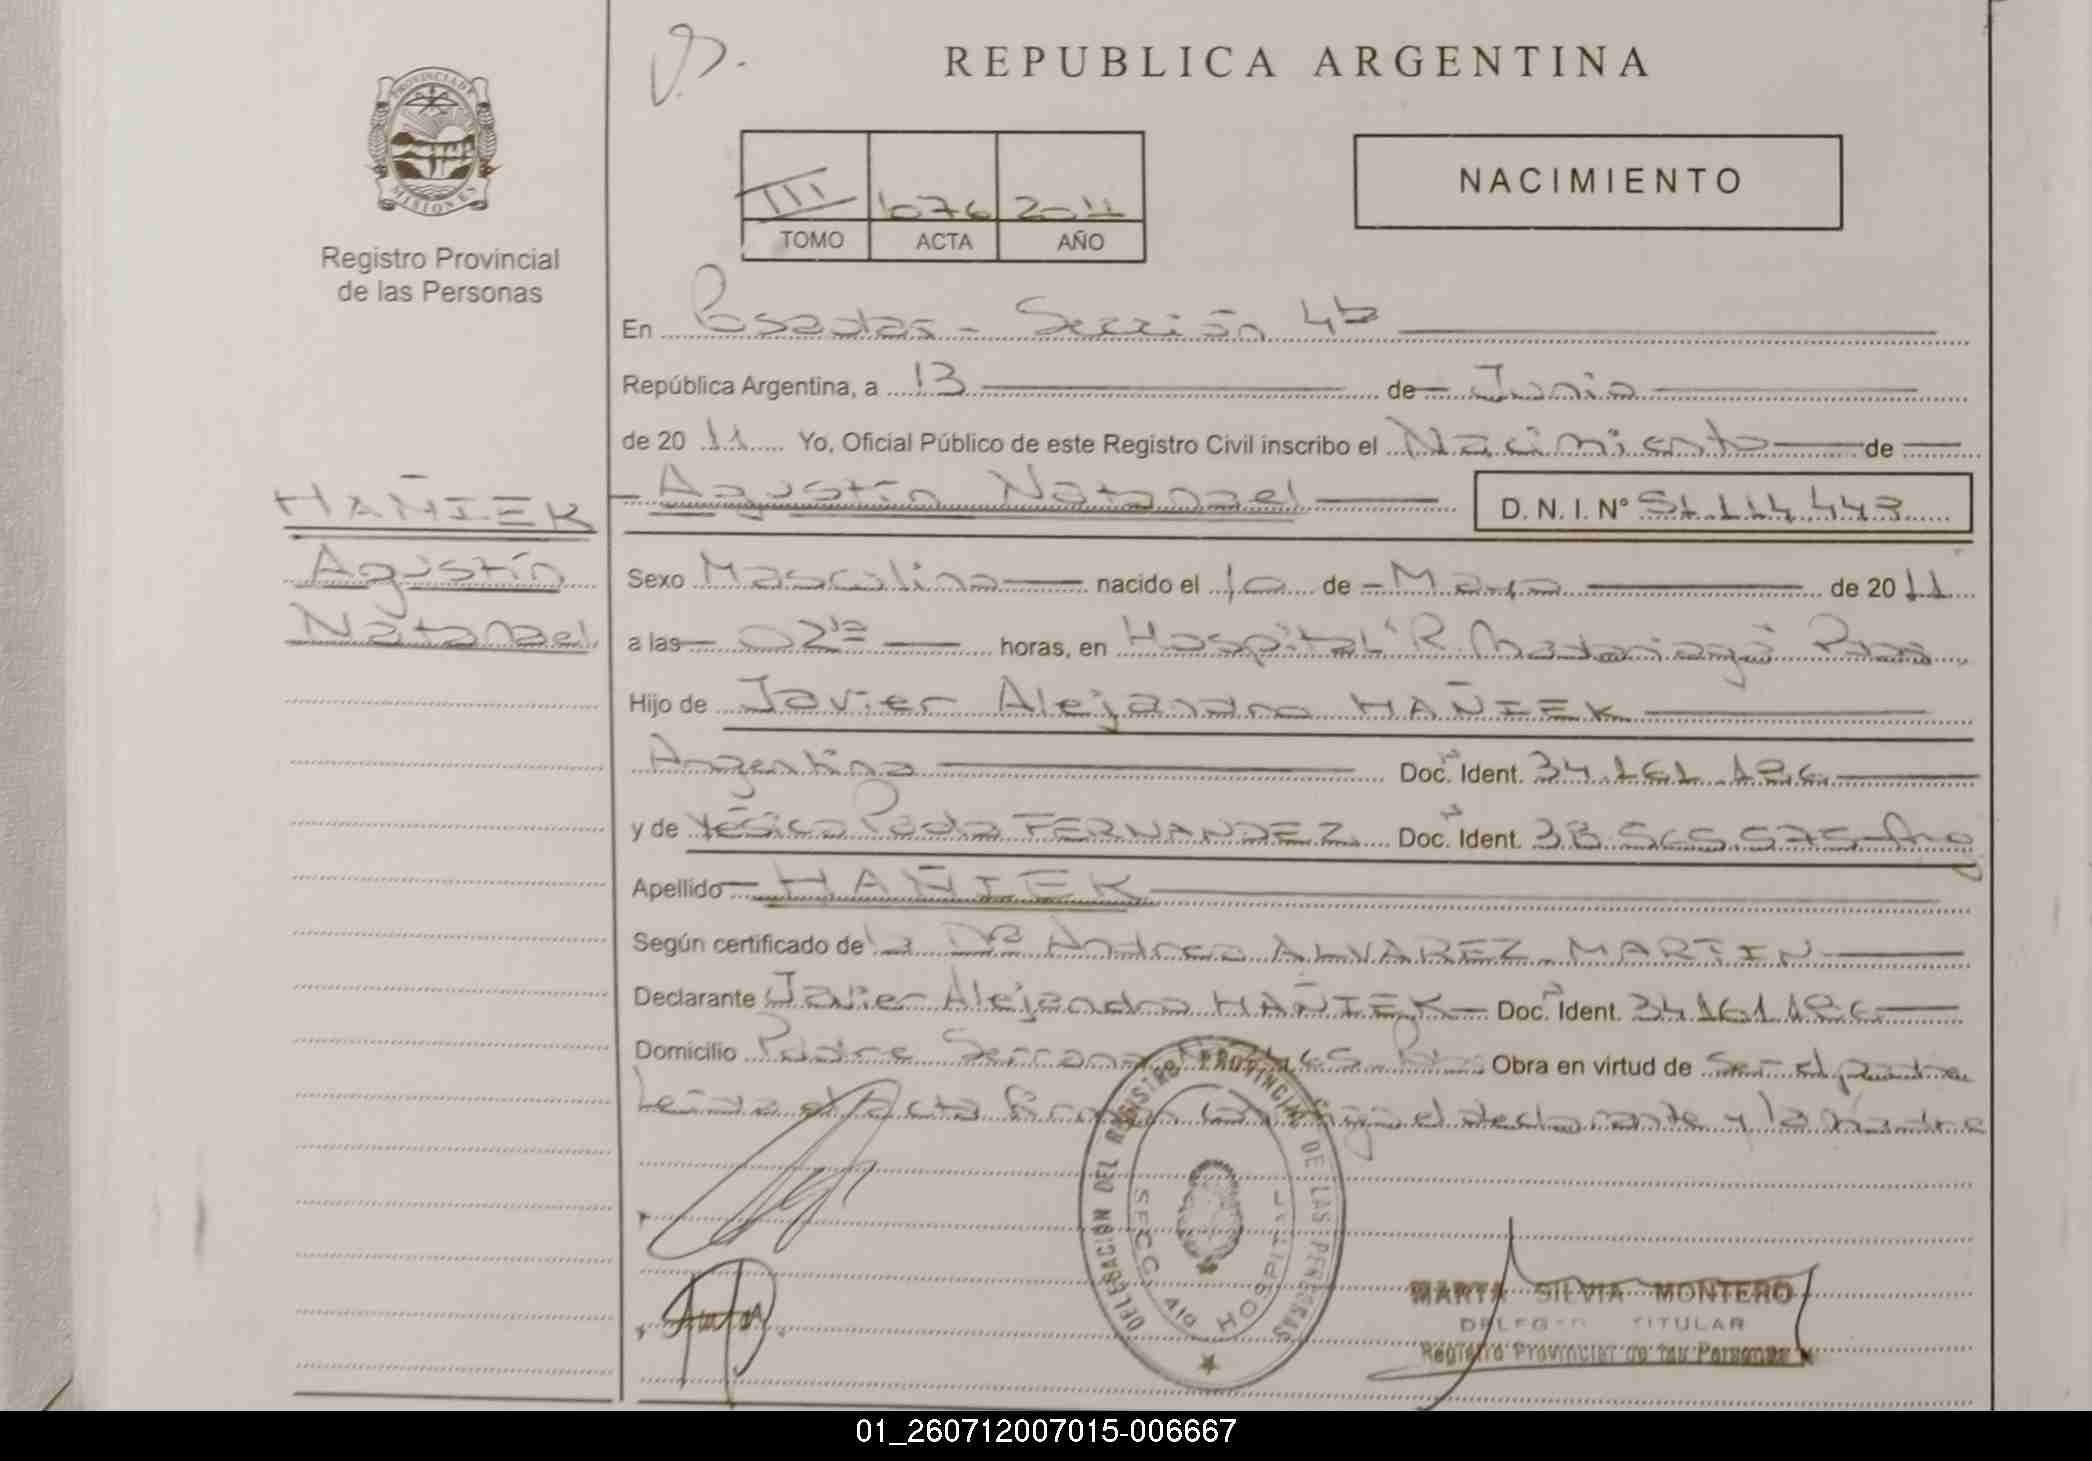 REPUBLICA ARGENTINA
PROVINCIA DE
MISIONES
Registro Provincial
de las Personas
III 1076 2011
TOMO ACTA AÑO
NACIMIENTO
En Posadas - Sección 4ta
República Argentina, a 13 de Junio
de 2011 Yo, Oficial Público de este Registro Civil inscribo el Nacimiento de
Agustín Natanael D. N. I. Nº 51.114.443
HAÑIEK
Agustín
Natanael
Sexo Masculino nacido el 10 de Mayo de 2011
a las 02 horas, en Hospital "R. Madariaga"
Hijo de Javier Alejandro HAÑIEK
Argentino Doc. Ident. 34.161.186
y de Yésica Paola FERNANDEZ Doc. Ident. 38.565.575 Arg
Apellido HAÑIEK
Según certificado de la Dra Andrea ALVAREZ MARTIN
Declarante Javier Alejandro HAÑIEK Doc. Ident. 34.161.186
Domicilio Padre Serrano Obra en virtud de ser el padre
Leída el Acta firman el declarante y la madre
DELEGACIÓN DEL REGISTRO PROVINCIAL DE LAS PERSONAS
SECC. 4ta HOSPITAL
MARTA SILVIA MONTERO
TITULAR
Registro Provincial de las Personas
01_260712007015-006667